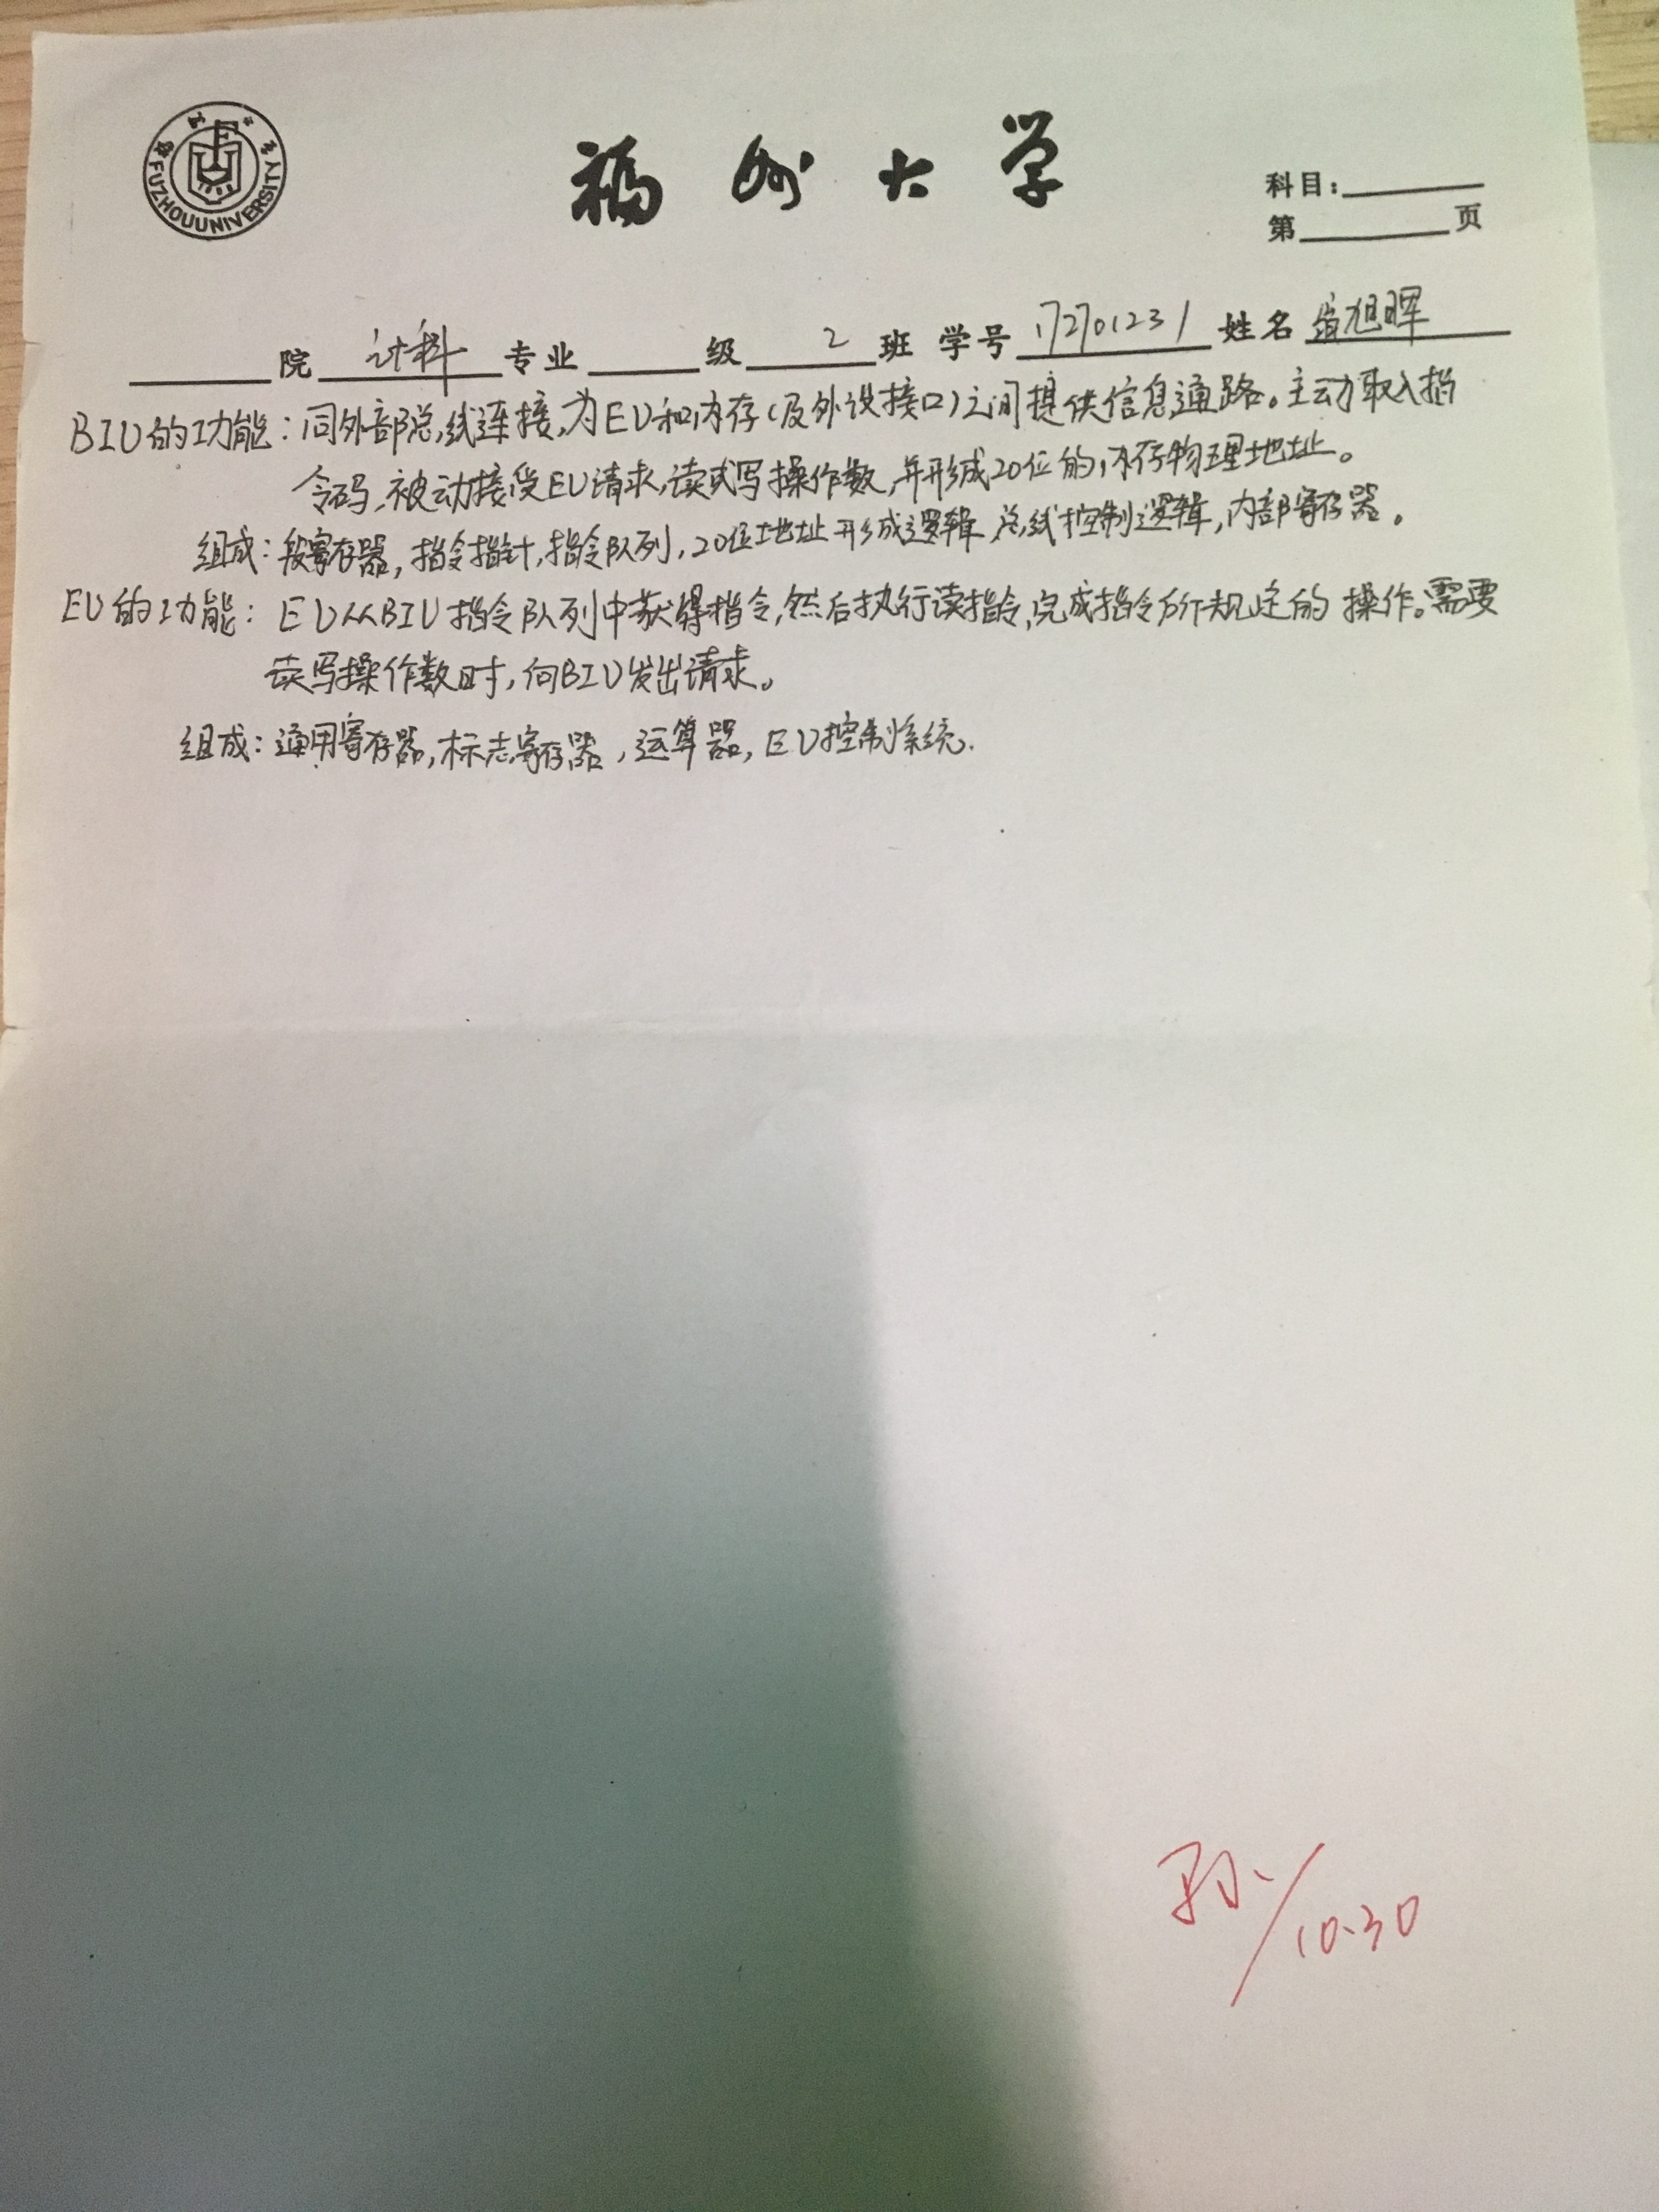 FUZHOU UNIVERSITY
福州大学
科目:
第 页
院 计科 专业 级 2 班 学号 172701231 姓名 旭晖
BIU的功能:同外部总线连接,为EU和内存(及外设接口)之间提供信息通路。主动取入指
令码,被动接受EU请求,读或写操作数,并形成20位的内存物理地址。
组成:段寄存器,指令指针,指令队列,20位地址形成逻辑,总线控制逻辑,内部寄存器。
EU的功能:EU从BIU指令队列中获得指令,然后执行该指令,完成指令所规定的操作。需要
读写操作数时,向BIU发出请求。
组成:通用寄存器,标志寄存器,运算器,EU控制系统.
10.30